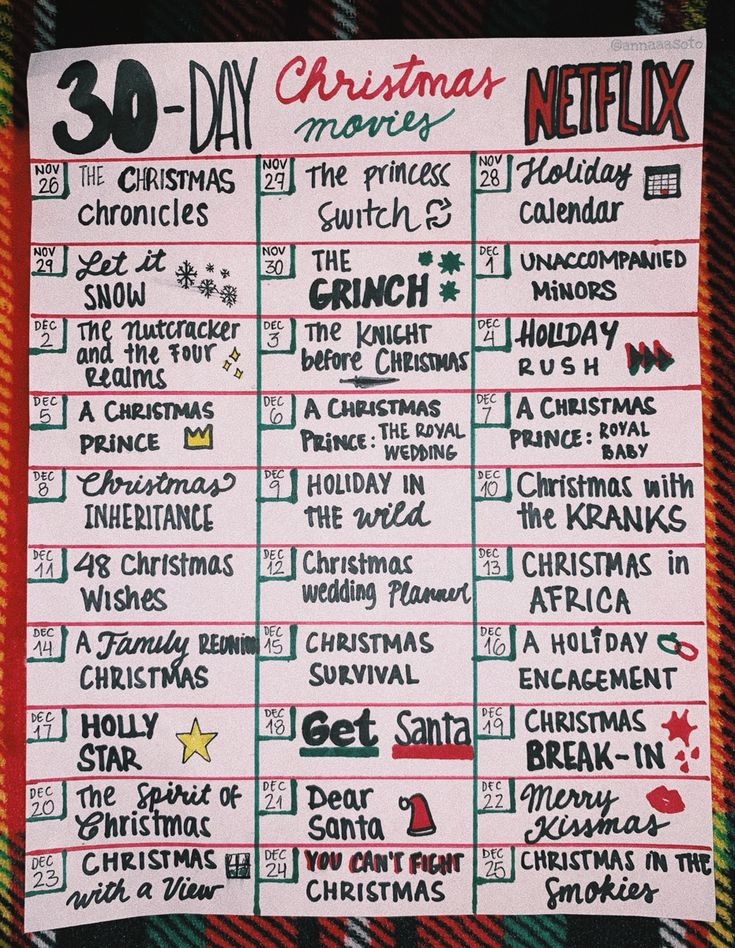 @annaaasoto
30-DAY Christmas movies NETFLIX
NOV 26 THE CHRISTMAS chronicles
NOV 27 The princess switch
NOV 28 Holiday calendar
NOV 29 Let it SNOW
NOV 30 THE GRINCH
DEC 1 UNACCOMPANIED MINORS
DEC 2 The nutcracker and the Four Realms
DEC 3 The KNIGHT before CHRISTMAS
DEC 4 HOLIDAY RUSH
DEC 5 A CHRISTMAS PRINCE
DEC 6 A CHRISTMAS PRINCE: THE ROYAL WEDDING
DEC 7 A CHRISTMAS PRINCE: ROYAL BABY
DEC 8 Christmas INHERITANCE
DEC 9 HOLIDAY IN THE wild
DEC 10 Christmas with the KRANKS
DEC 11 48 Christmas Wishes
DEC 12 Christmas wedding Planner
DEC 13 CHRISTMAS in AFRICA
DEC 14 A Family REUNION CHRISTMAS
DEC 15 CHRISTMAS SURVIVAL
DEC 16 A HOLiDAY ENGAGEMENT
DEC 17 HOLLY STAR
DEC 18 Get Santa
DEC 19 CHRISTMAS BREAK-IN
DEC 20 The Spirit of Christmas
DEC 21 Dear Santa
DEC 22 Merry Kissmas
DEC 23 CHRISTMAS with a View
DEC 24 YOU CAN'T FIGHT CHRISTMAS
DEC 25 CHRISTMAS IN THE Smokies